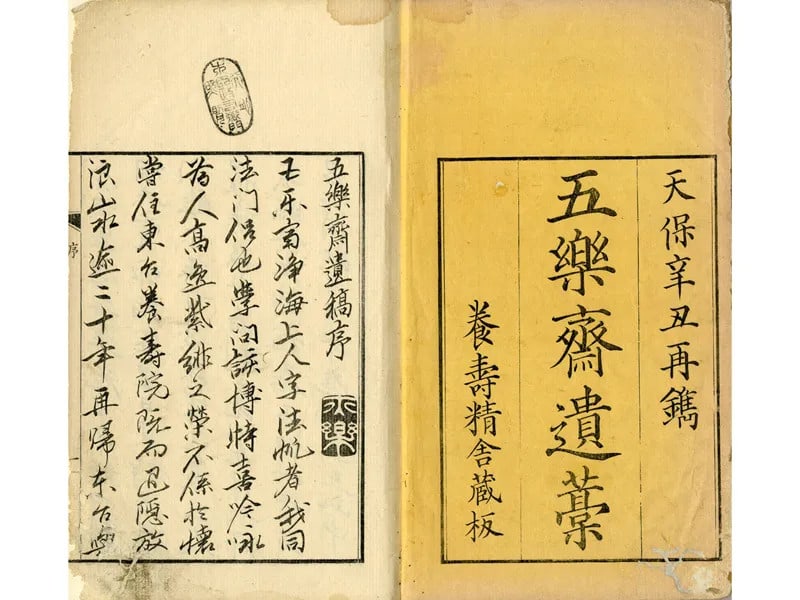 天保辛丑再鐫
五樂齋遺藁
養壽精舍蔵板
五樂齋遺稿序
五樂齋浄海上人字法帆者我同
法門侶也學问該博特喜吟咏
為人高逸紫緋之榮不係於懐
嘗住東台養壽院既而退隠放
浪山水逾二十年再帰東台與
序